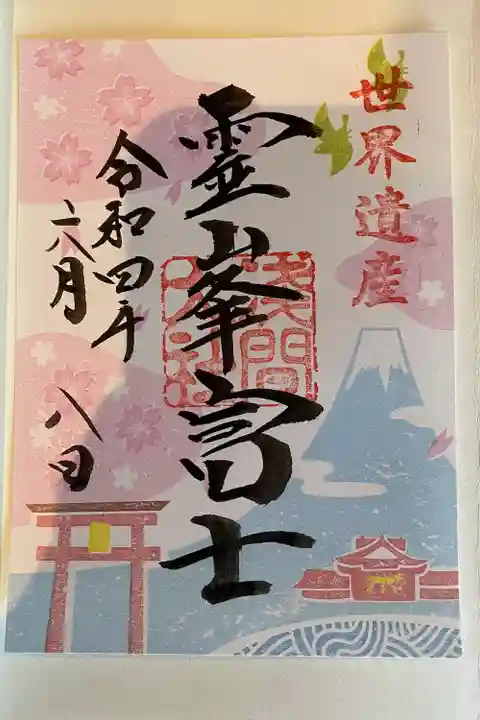 世界遺産
霊峯富士
浅間
大社
令和四年
六月
八日